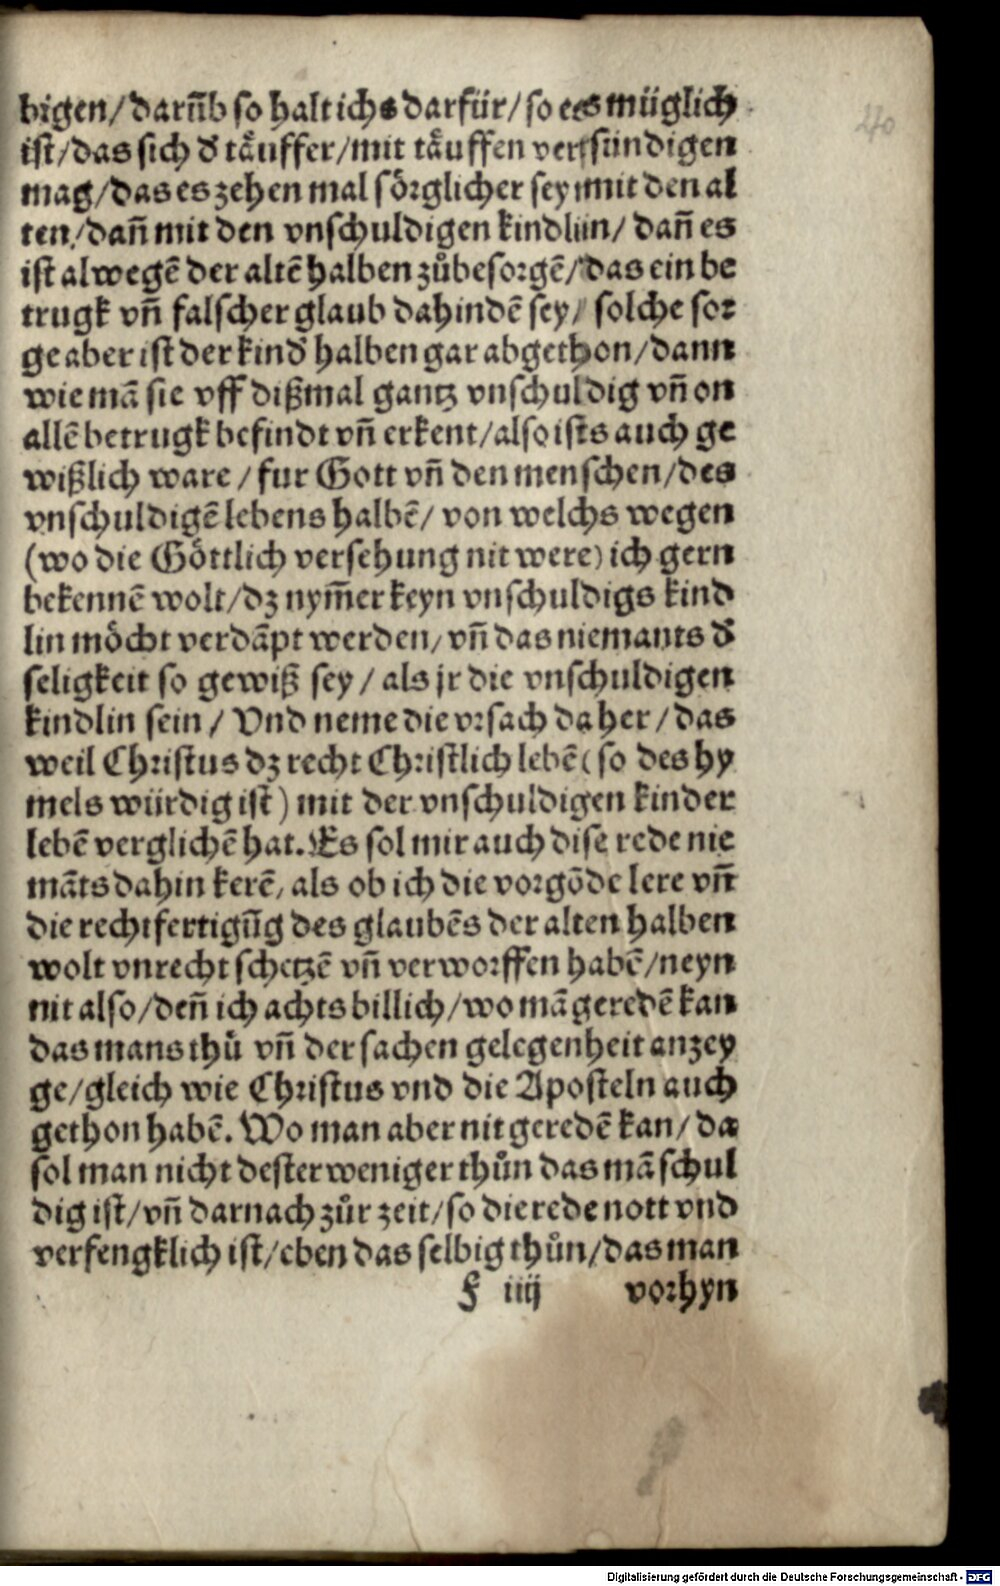 bigen/ darũb so halt ichs darfür/ so es müglich
ist/ das sich d̕ täuffer/ mit täuffen versündigen
mag/ das es zehen mal sörglicher sey mit den al
ten/ dañ mit den vnschuldigen kindlin/ dañ es
ist alwegẽ der altẽ halben zůbesorgẽ/ das ein be
trugk vñ falscher glaub dahindẽ sey/ solche sor
ge aber ist der kind̕ halben gar abgethon/ dann
wie mã sie vff dißmal gantz vnschuldig vñ on
allẽ betrugk befindt vñ erkent/ also ists auch ge
wißlich ware/ fur Gott vñ den menschen/ des
vnschuldigẽ lebens halbẽ/ von welchs wegen
(wo die Göttlich versehung nit were) ich gern
bekennẽ wolt/ dz nym̃er keyn vnschuldigs kind
lin möcht verdãpt werden/ vñ das niemants d̕
seligkeit so gewiß sey/ als jr die vnschuldigen
kindlin sein/ Vnd neme die vrsach da her/ das
weil Christus dz recht Christlich lebẽ (so des hy
mels würdig ist) mit der vnschuldigen kinder
lebẽ verglichẽ hat. Es sol mir auch dise rede nie
mãts dahin kerẽ, als ob ich die vorgõde lere vñ
die rechtfertigũg des glaubẽs der alten halben
wolt vnrecht schetzẽ vñ verworffen habẽ/ neyn
nit also/ deñ ich achts billich/ wo mã geredẽ kan
das mans thů vñ der sachen gelegenheit anzey
ge/ gleich wie Christus vnd die Aposteln auch
gethon habẽ. Wo man aber nit geredẽ kan/ da
sol man nicht dester weniger thůn das mã schul
dig ist/ vñ darnach zůr zeit/ so die rede nott vnd
verfengklich ist/ eben das selbig thůn/ das man
F iiij vorhyn
40
Digitalisierung gefördert durch die Deutsche Forschungsgemeinschaft - DFG